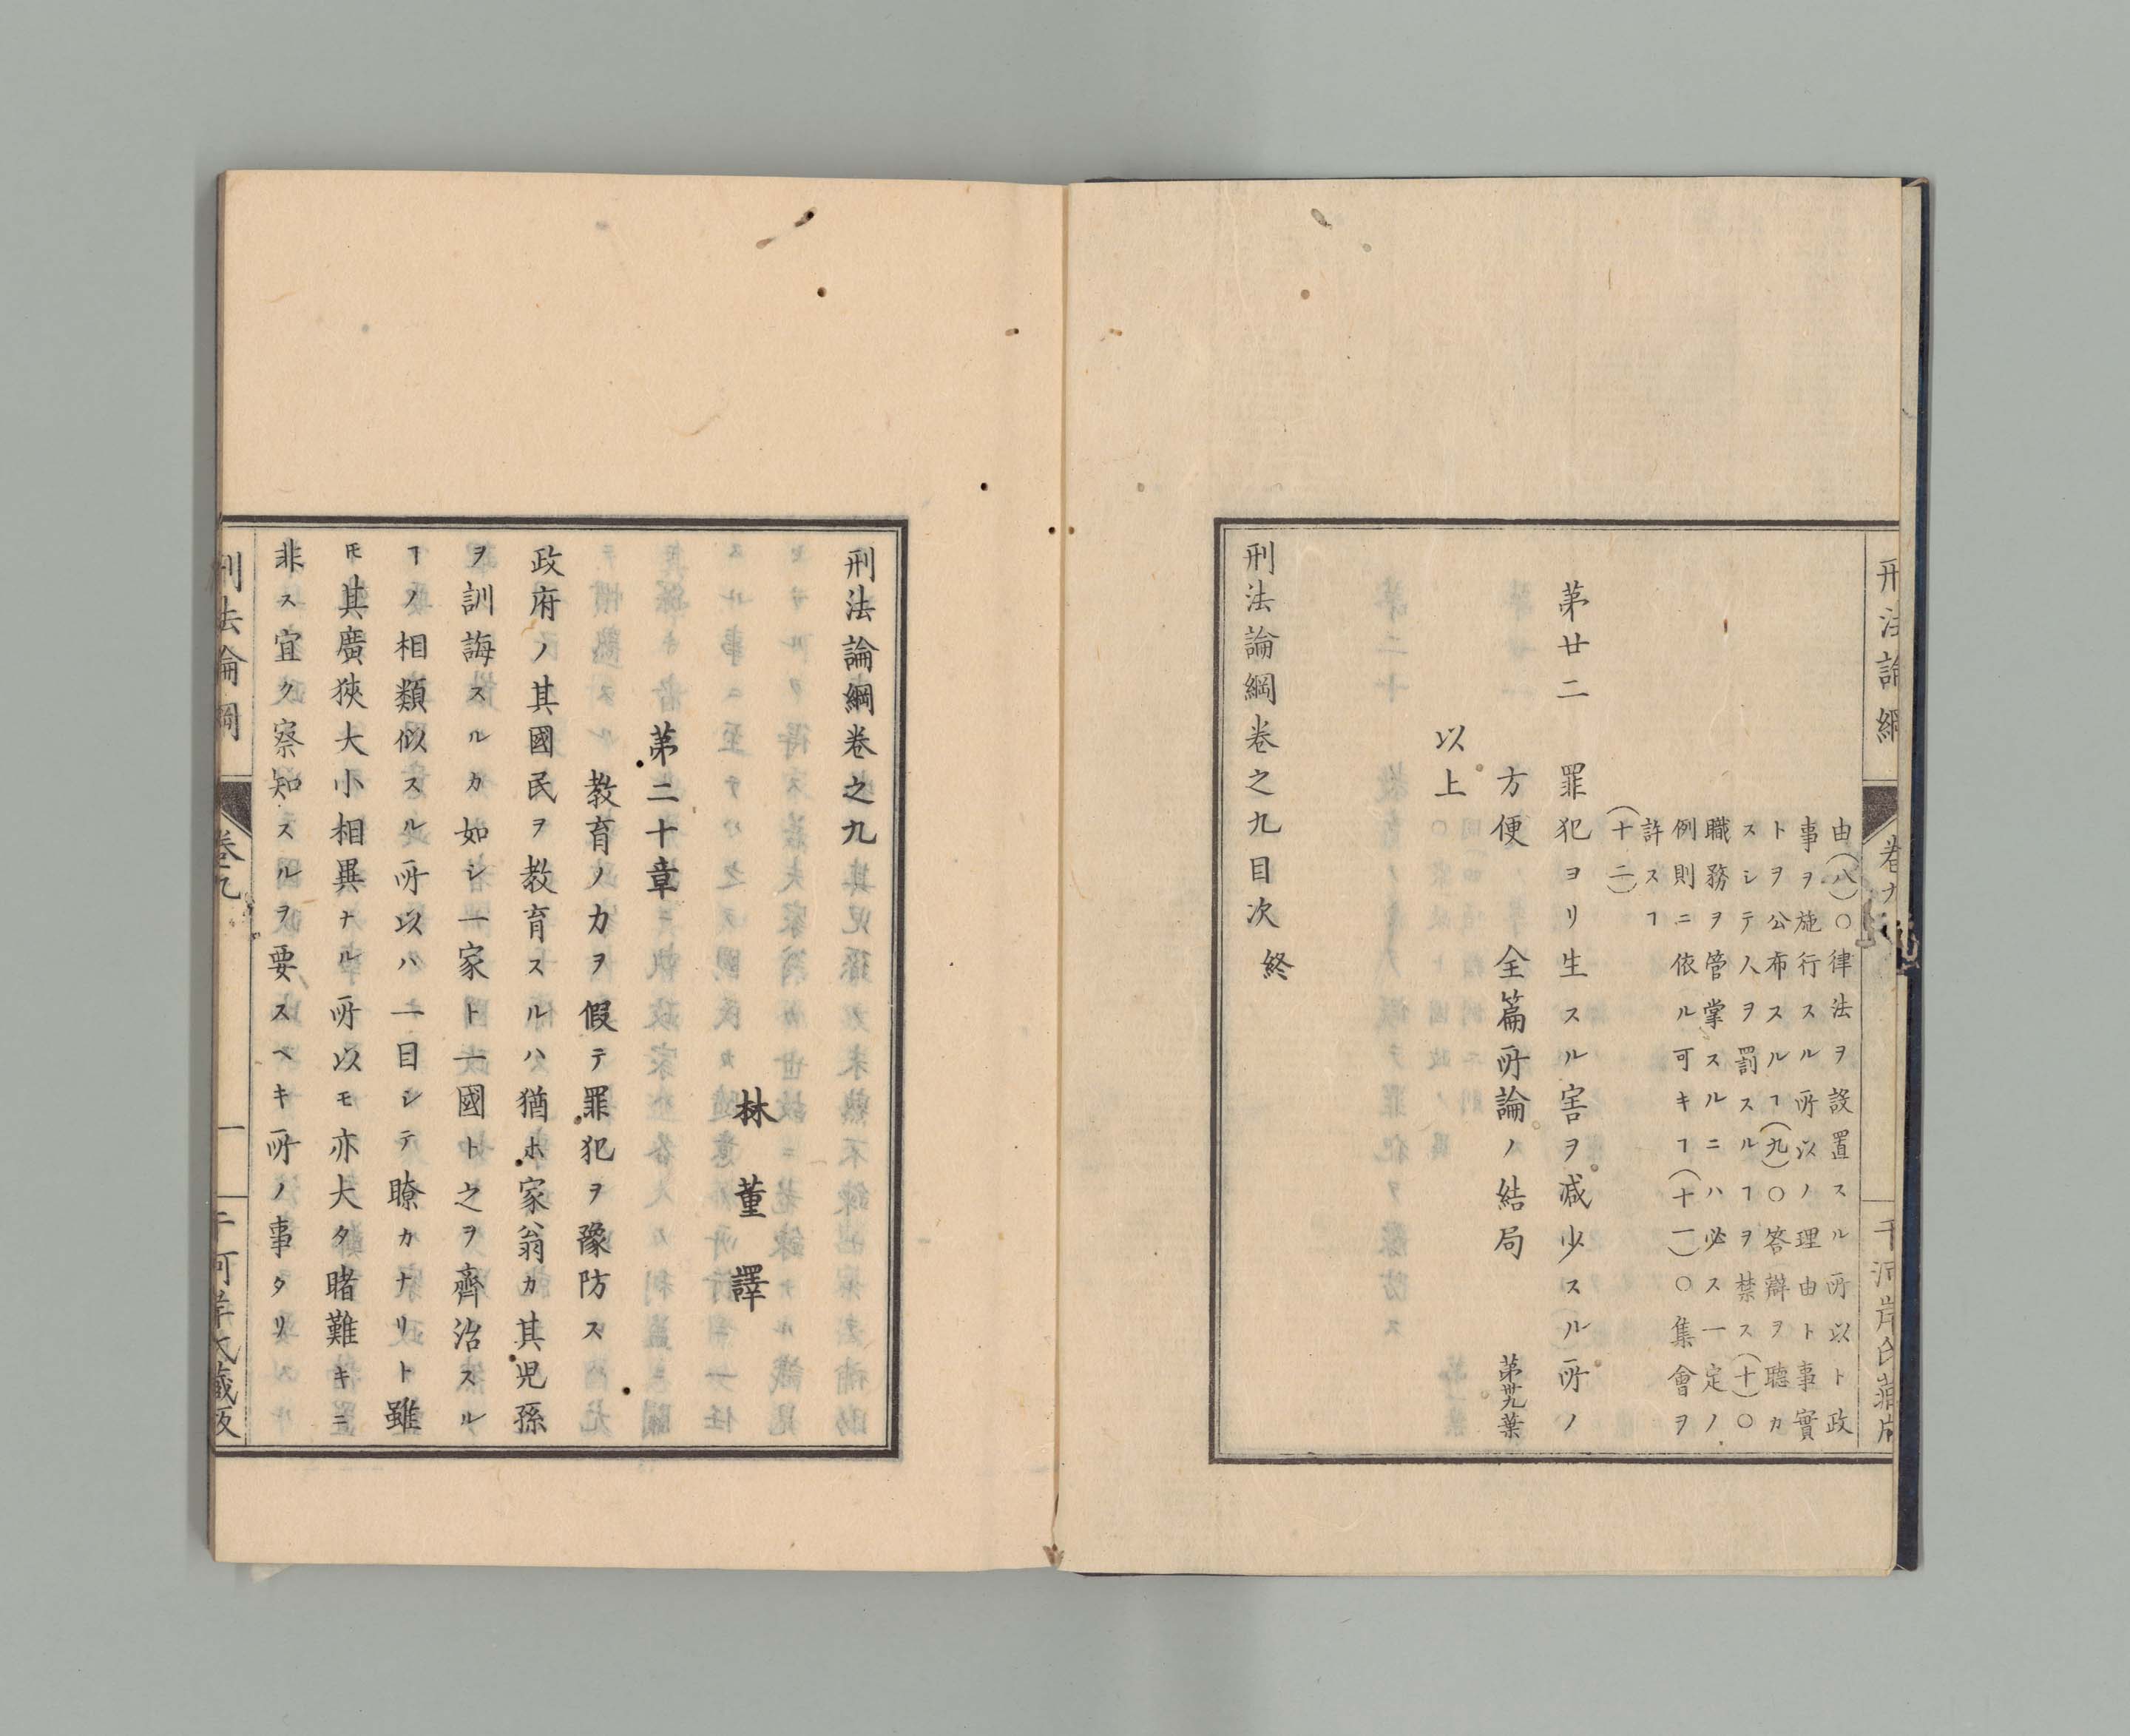 由(八)○律法ヲ設置スル所以ト政
事ヲ施行スル所以ノ理由ト事實
トヲ公布スルヿ(九)○答辯ヲ聴カ
スシテ人ヲ罰スルヿヲ禁ス(十)○
職務ヲ管掌スルニハ必ス一定ノ
例則ニ依ル可キヿ(十一)○集會ヲ
許スヿ
(十二)
苐廿二 罪犯ヨリ生スル害ヲ減少スル所ノ
方便 全篇所論ノ結局 苐卄九葉
以上
刑法論綱卷之九目次終
刑法論綱卷之九
林 董 譯
苐二十章
教育ノカヲ假テ罪犯ヲ豫防ス
政府ノ其國民ヲ教育スルハ猶ホ家翁カ其児孫
ヲ訓誨スルカ如シ一家ト一國ト之ヲ齊治スル
ヿノ相類似スル所以ハ一目シテ瞭カナリト雖
𪜈其廣狹大小相異ナル所以モ亦大タ睹難キニ
非ス宜ク察知スルヲ要スヘキ所ノ事タリ
刑法論綱 卷九 一